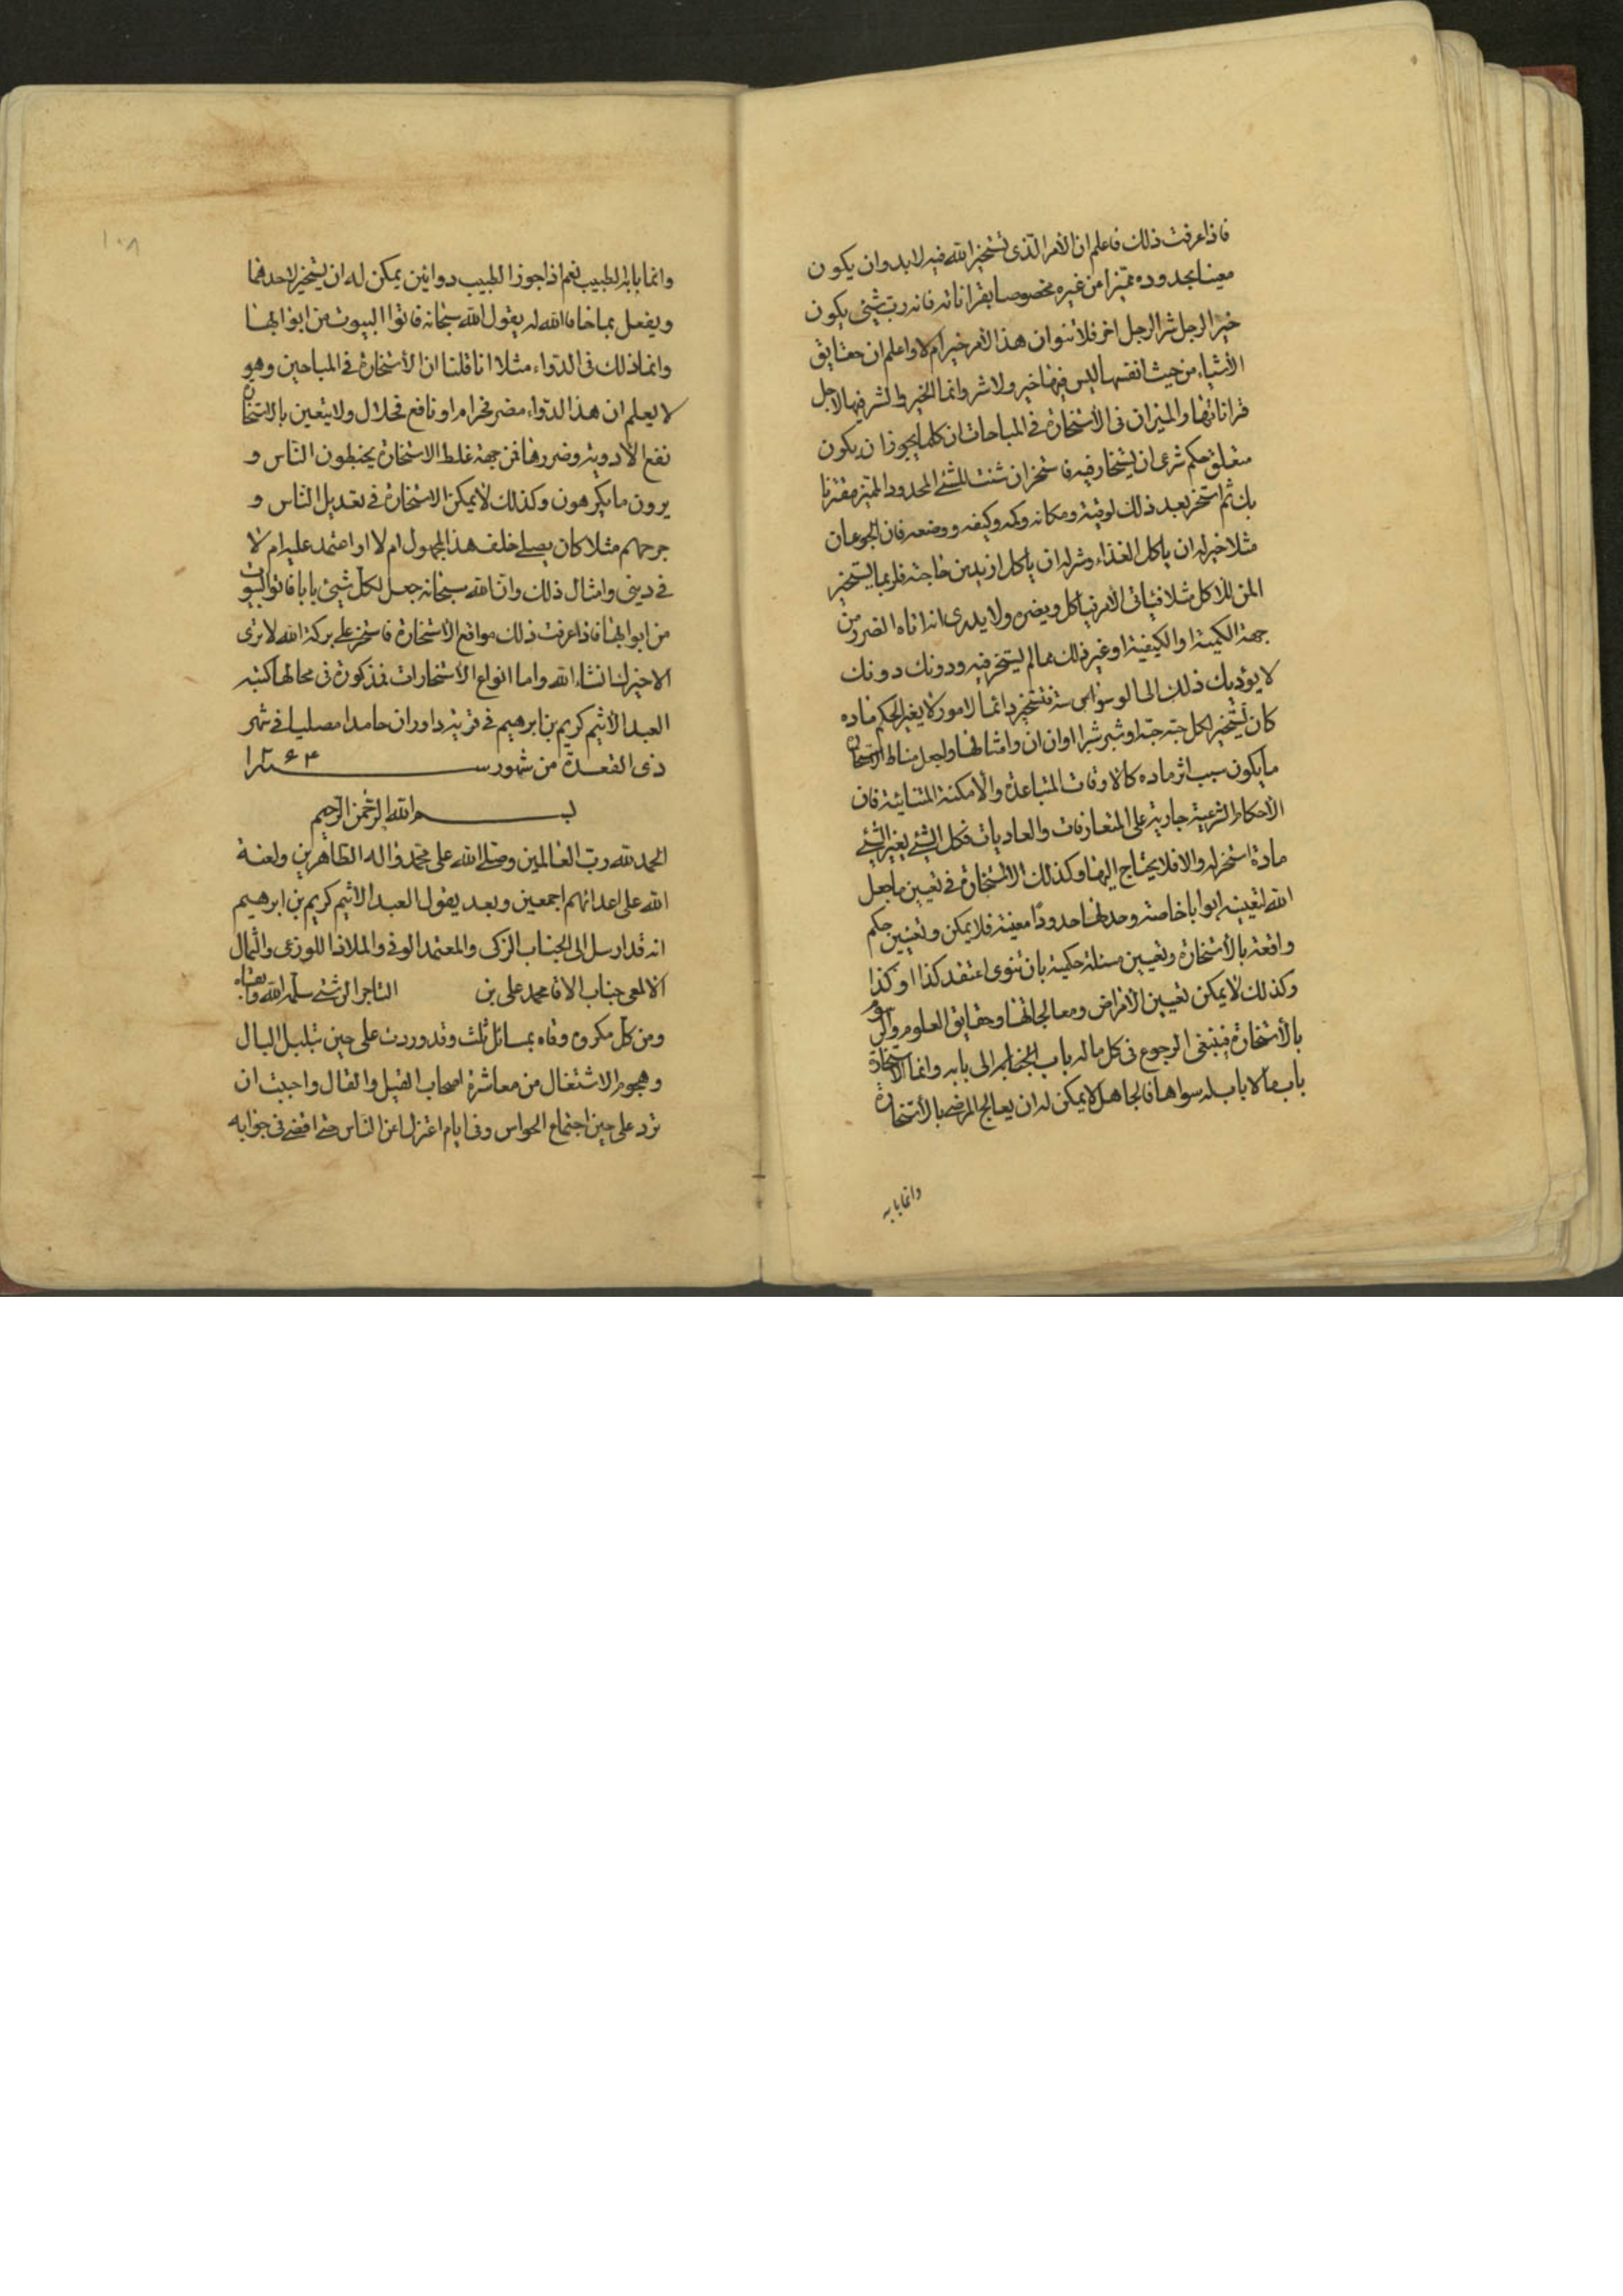 فاذا عرفت ذلك فاعلم ان الأمر الّذى تستخير الله فيه لابد وان يكون
معينا بحدوده متميزا من غيره مخصوصا بقراناته فانه ربّ شيئ يكون
خيرا لرجل شرا لرجل اخر فلا تنو ان هذا الأمر خير ام لا واعلم ان حقايق
الأشياء من حيث انفسها ليس فيها خير ولا شر وانما الخير والشر فيها لاجل
قراناتها والميزان فى الأستخارة فى المباحات ان كلما يجوز ان يكون
متعلق حكم شرعى ان يستخار فيه فاستخر ان شئت للشئ المحدود المتميز مقترنا
بك ثم استخر بعد ذلك لوقته ومكانه وكمه وكيفه ووضعه فان الجوعان
مثلا خير له ان ياكل الغذاء وشر له ان ياكل ازيد من حاجته فلربما يستخير
للاكل مثلا فياتى الأمر فياكل ويضره ولا يدرى انه اتاه الضرر من
جهة الكمية او الكيفية او غير ذلك مما لم يستخر فيه ودونك دونك
لا يؤديك ذلك الى الوسواس فتستخير دائما لامور لا يغير الحكم ماده
كان تستخير لكل حبة حبة او شبر شبر او ان ان وامثالها واجعل مناط الاستخارة
ما يكون سبب اثر ماده كالاوقات المتباعدة والأمكنة المتنائية فان
الأحكام الشرعية جارية على المتعارفات والعاديات فكل الشئ يغير الشئ
مادة استخر له والا فلا يحتاج اليها وكذلك الأستخارة فى تعيين ما جعل
الله لتعيينه ابوابا خاصة وحد لها حدودًا معينة فلا يمكن وتعيين حكم
واقعة بالأستخارة وتعيين مسئلة حكمية بان تنوى اعتقد كذا او كذا
وكذلك لا يمكن تعيين الأمراض ومعالجاتها وحقايق العلوم والرسوم
بالأستخارة فينبغى الرجوع فى كل ما له باب الى بابه وانما الاستخارة
باب ما لا باب له سواها فالجاهل لا يمكن له ان يعالج المرضى بالأستخارة
وانما بابه
١٠٨
وانما بابه الطبيب نعم اذا جوز الطبيب دوائين يمكن له ان يستخير لاحدهما
ويفعل بما خار الله له يقول الله سبحانه فاتوا البيوت من ابوابها
وانما ذلك فى الدواء مثلا انا قلنا ان الأستخارة فى المباحين وهو
لا يعلم ان هذا الدواء مضر فحرام او نافع فحلال ولا يتعين بالاستخارة
نفع الأدوية وضررها فمن جهة غلط الاستخارة يخبطون النّاس و
يرون ما يكرهون وكذلك لا يمكن الاستخارة فى تعديل النّاس و
جرحهم مثلا كان يصلى خلف هذا المجهول ام لا او اعتمد عليه ام لا
فى دينى وامثال ذلك وان الله سبحانه جعل لكل شيئ بابا فاتوا البيوت
من ابوابها فاذا عرفت ذلك مواقع الأستخارة فاستخر على بركة الله لا ترى
الا خيرا انشاء الله واما انواع الأستخارات فمذكورة فى محالها كتبه
العبد الأثيم كريم بن ابرهيم فى قرية داوران حامدا مصليا فى شهر
ذى القعدة من شهور سنة ١٢۶۴
بسم الله الرّحمن الرّحيم
الحمد لله ربّ العالمين وصلى الله على محمّد واله الطاهرين ولعنة
الله على اعدائهم اجمعين وبعد يقول العبد الاثيم كريم بن ابرهيم
انه قد ارسل الى الجناب الزكى والمعتمد الوفى والملاذ اللوذعى والثمال
الالمعى جناب الاقا محمد على بن التاجر الرشتى سلّمه الله وابقاه
ومن كل مكروه وقاه بمسائل ثلث وقد وردت على حين تبلبل البال
وهجوم الاشتغال من معاشرة اصحاب القيل والقال واحببت ان
ترد على حين اجتماع الحواس وفى ايام اعتزل عن النّاس حتى اقضى فى جوابه